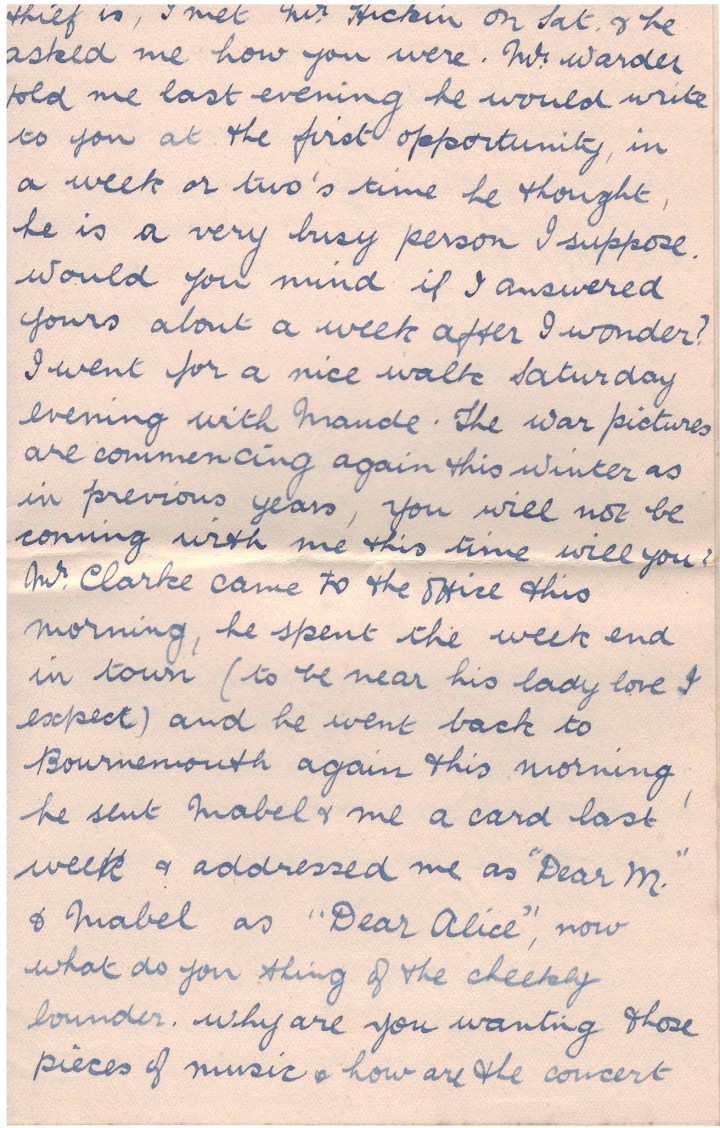 thief is, I met Mr. Hickin on Sat. & he
asked me how you were. Mr. Warder
told me last evening he would write
to you at the first opportunity, in
a week or two's time he thought,
he is a very busy person I suppose.
Would you mind if I answered
yours about a week after I wonder?
I went for a nice walk Saturday
evening with Maude. The war pictures
are commencing again this winter as
in previous years, you will not be
coming with me this time will you?
Mr. Clarke came to the office this
morning, he spent the week end
in town (to be near his lady love I
expect) and he went back to
Bournemouth again this morning,
he sent Mabel & me a card last
week & addressed me as "Dear M."
& Mabel as "Dear Alice", now
what do you thing of the cheekly
bounder. Why are you wanting those
pieces of music & how are the concert